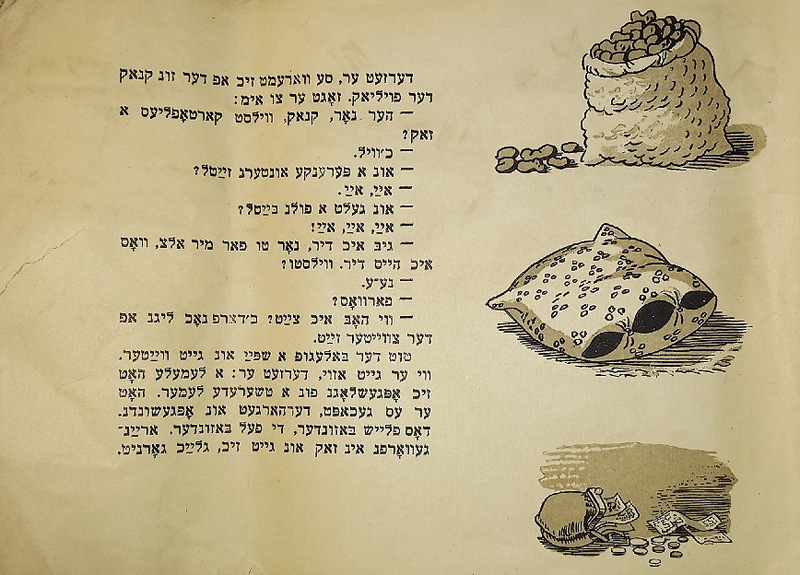 דערזעט ער, סע ווארעמט זיכ אפ דער זונ קנאק
דער פוילאק. זאָגט ער צו אימ:
— הער נאָר, קנאק, ווילסט קארטאָפליעס א
זאק?
— כ׳וויל.
— אונ א פּערענקע אונטערנ זײַטל?
— אײַ, אײַ.
— אונ געלט א פולנ בײַטל?
— אײַ, אײַ, אײַ!
— גיב איכ דיר, נאָר טו פאר מיר אלצ, וואָס
איכ הייס דיר. ווילסטו?
— נע־ע.
— פארוואָס?
— ווי האָב איכ צײַט? כ׳דארפ נאָכ ליגנ אפ
דער צווייטער זײַט.
טוט דער באלעגופ א שפּײַ אונ גייט ווײַטער.
ווי ער גייט אזוי, דערזעט ער: א לעמעלע האָט
זיכ אָפּגעשלאָגנ פונ א טשערעדע לעמער. האָט
ער עס געכאפּט, דערהארגעט אונ אָפּגעשונדנ.
דאָס פלייש באזונדער, די פעל באזונדער. ארײַנ־
געוואָרפנ אינ זאק אונ גייט זיכ, גלײַכ גאָרניט.